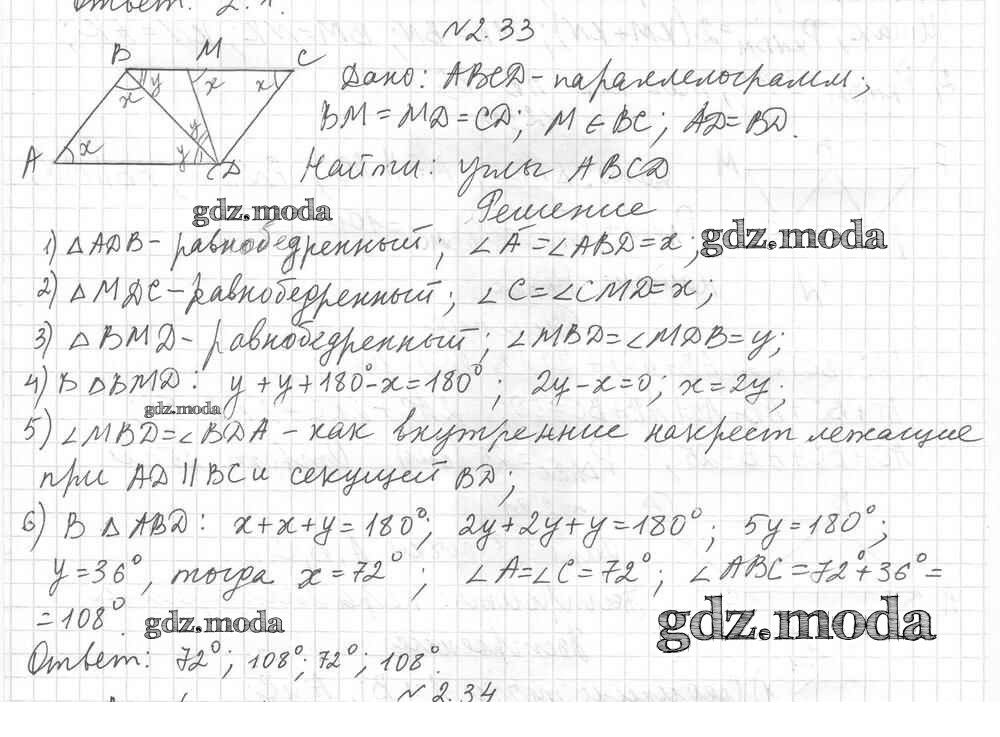 Ответ: 2.1.
№2.33
B M C
x y x x
y
A x y D
Дано: ABCD – параллелограмм;
BM = MD = CD; M ∈ BC; AD = BD.
Найти: углы ABCD
Решение
gdz.moda
1) △ADB – равнобедренный; ∠A = ∠ABD = x; gdz.moda
2) △MDC – равнобедренный; ∠C = ∠CMD = x;
3) △BMD – равнобедренный; ∠MBD = ∠MDB = y;
4) В △BMD: y + y + 180° - x = 180°; 2y - x = 0; x = 2y;
gdz.moda
5) ∠MBD = ∠BDA – как внутренние накрест лежащие
при AD || BC и секущей BD;
6) В △ABD: x + x + y = 180°; 2y + 2y + y = 180°; 5y = 180°;
y = 36°, тогда x = 72°; ∠A = ∠C = 72°; ∠ABC = 72° + 36° =
= 108°. gdz.moda gdz.moda
Ответ: 72°; 108°; 72°; 108°.
№2.34